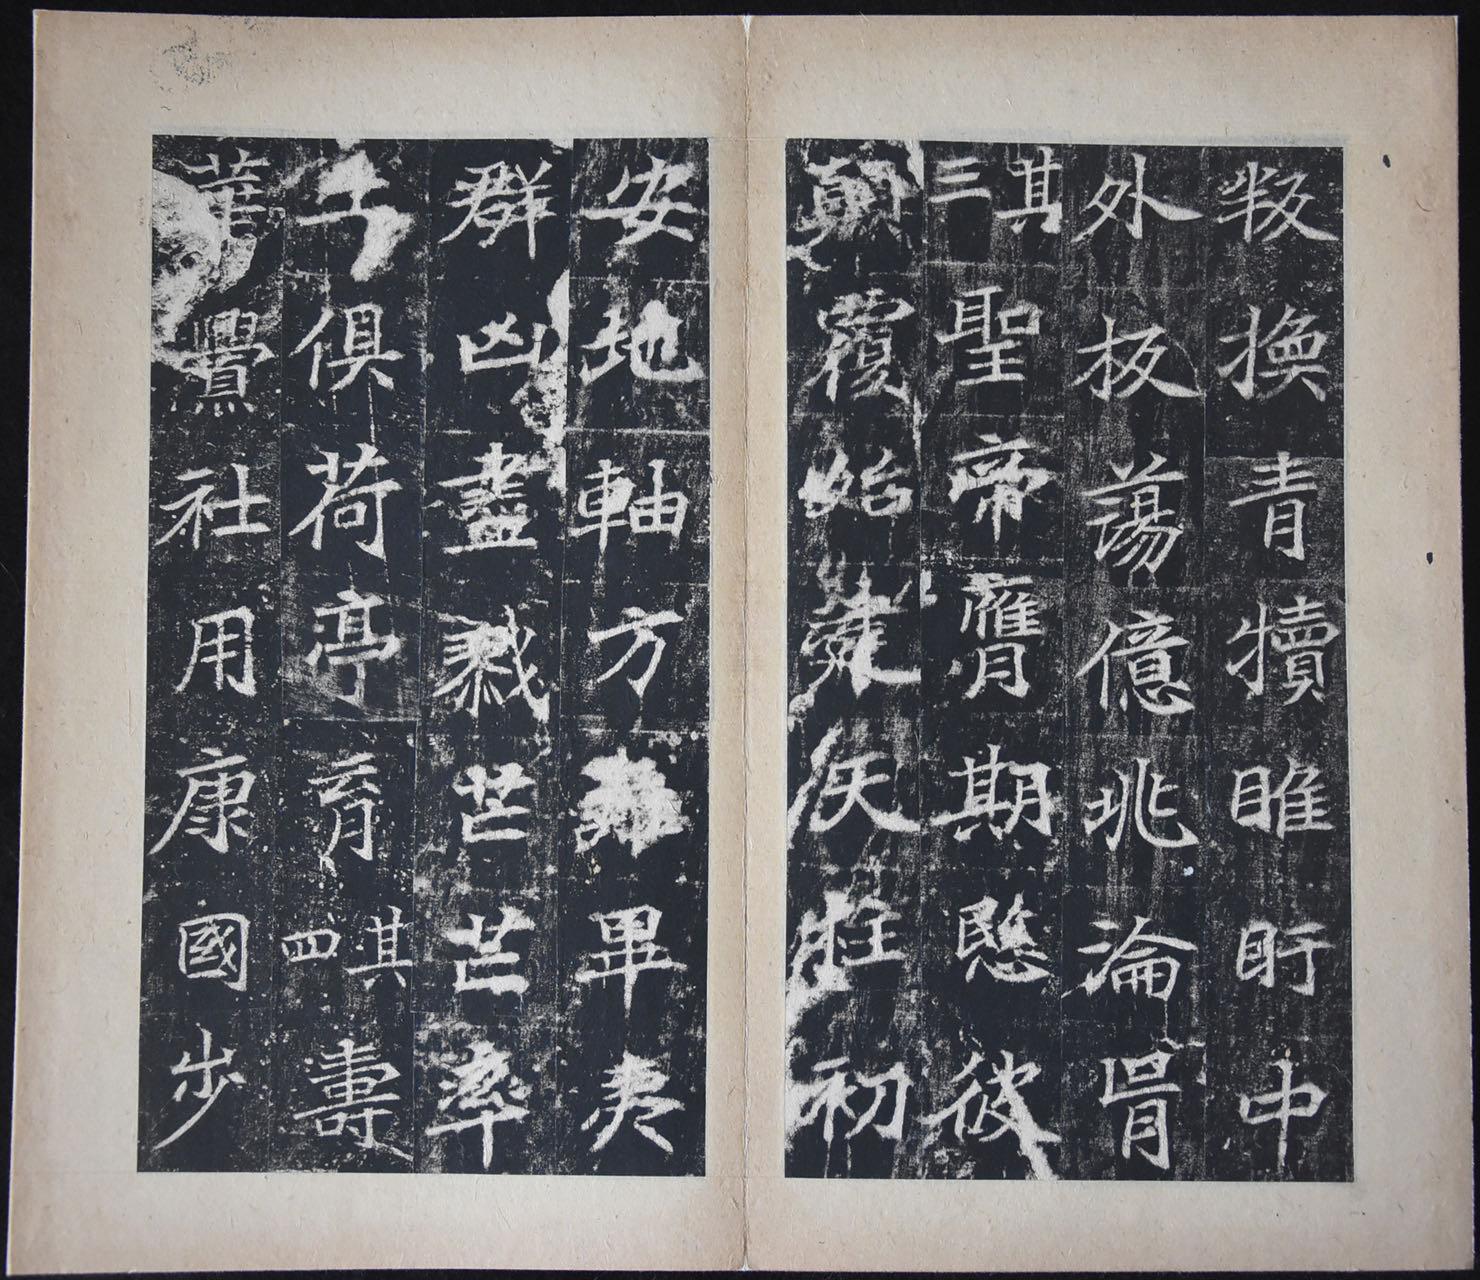 叛換青犢睢盱中
外板蕩億兆淪胥
其三聖帝膺期愍彼
顛覆始建天柱初
安地軸方難畢夷
群凶盡戮芒芒率
土俱荷亭育其四壽
華舋社用康國步